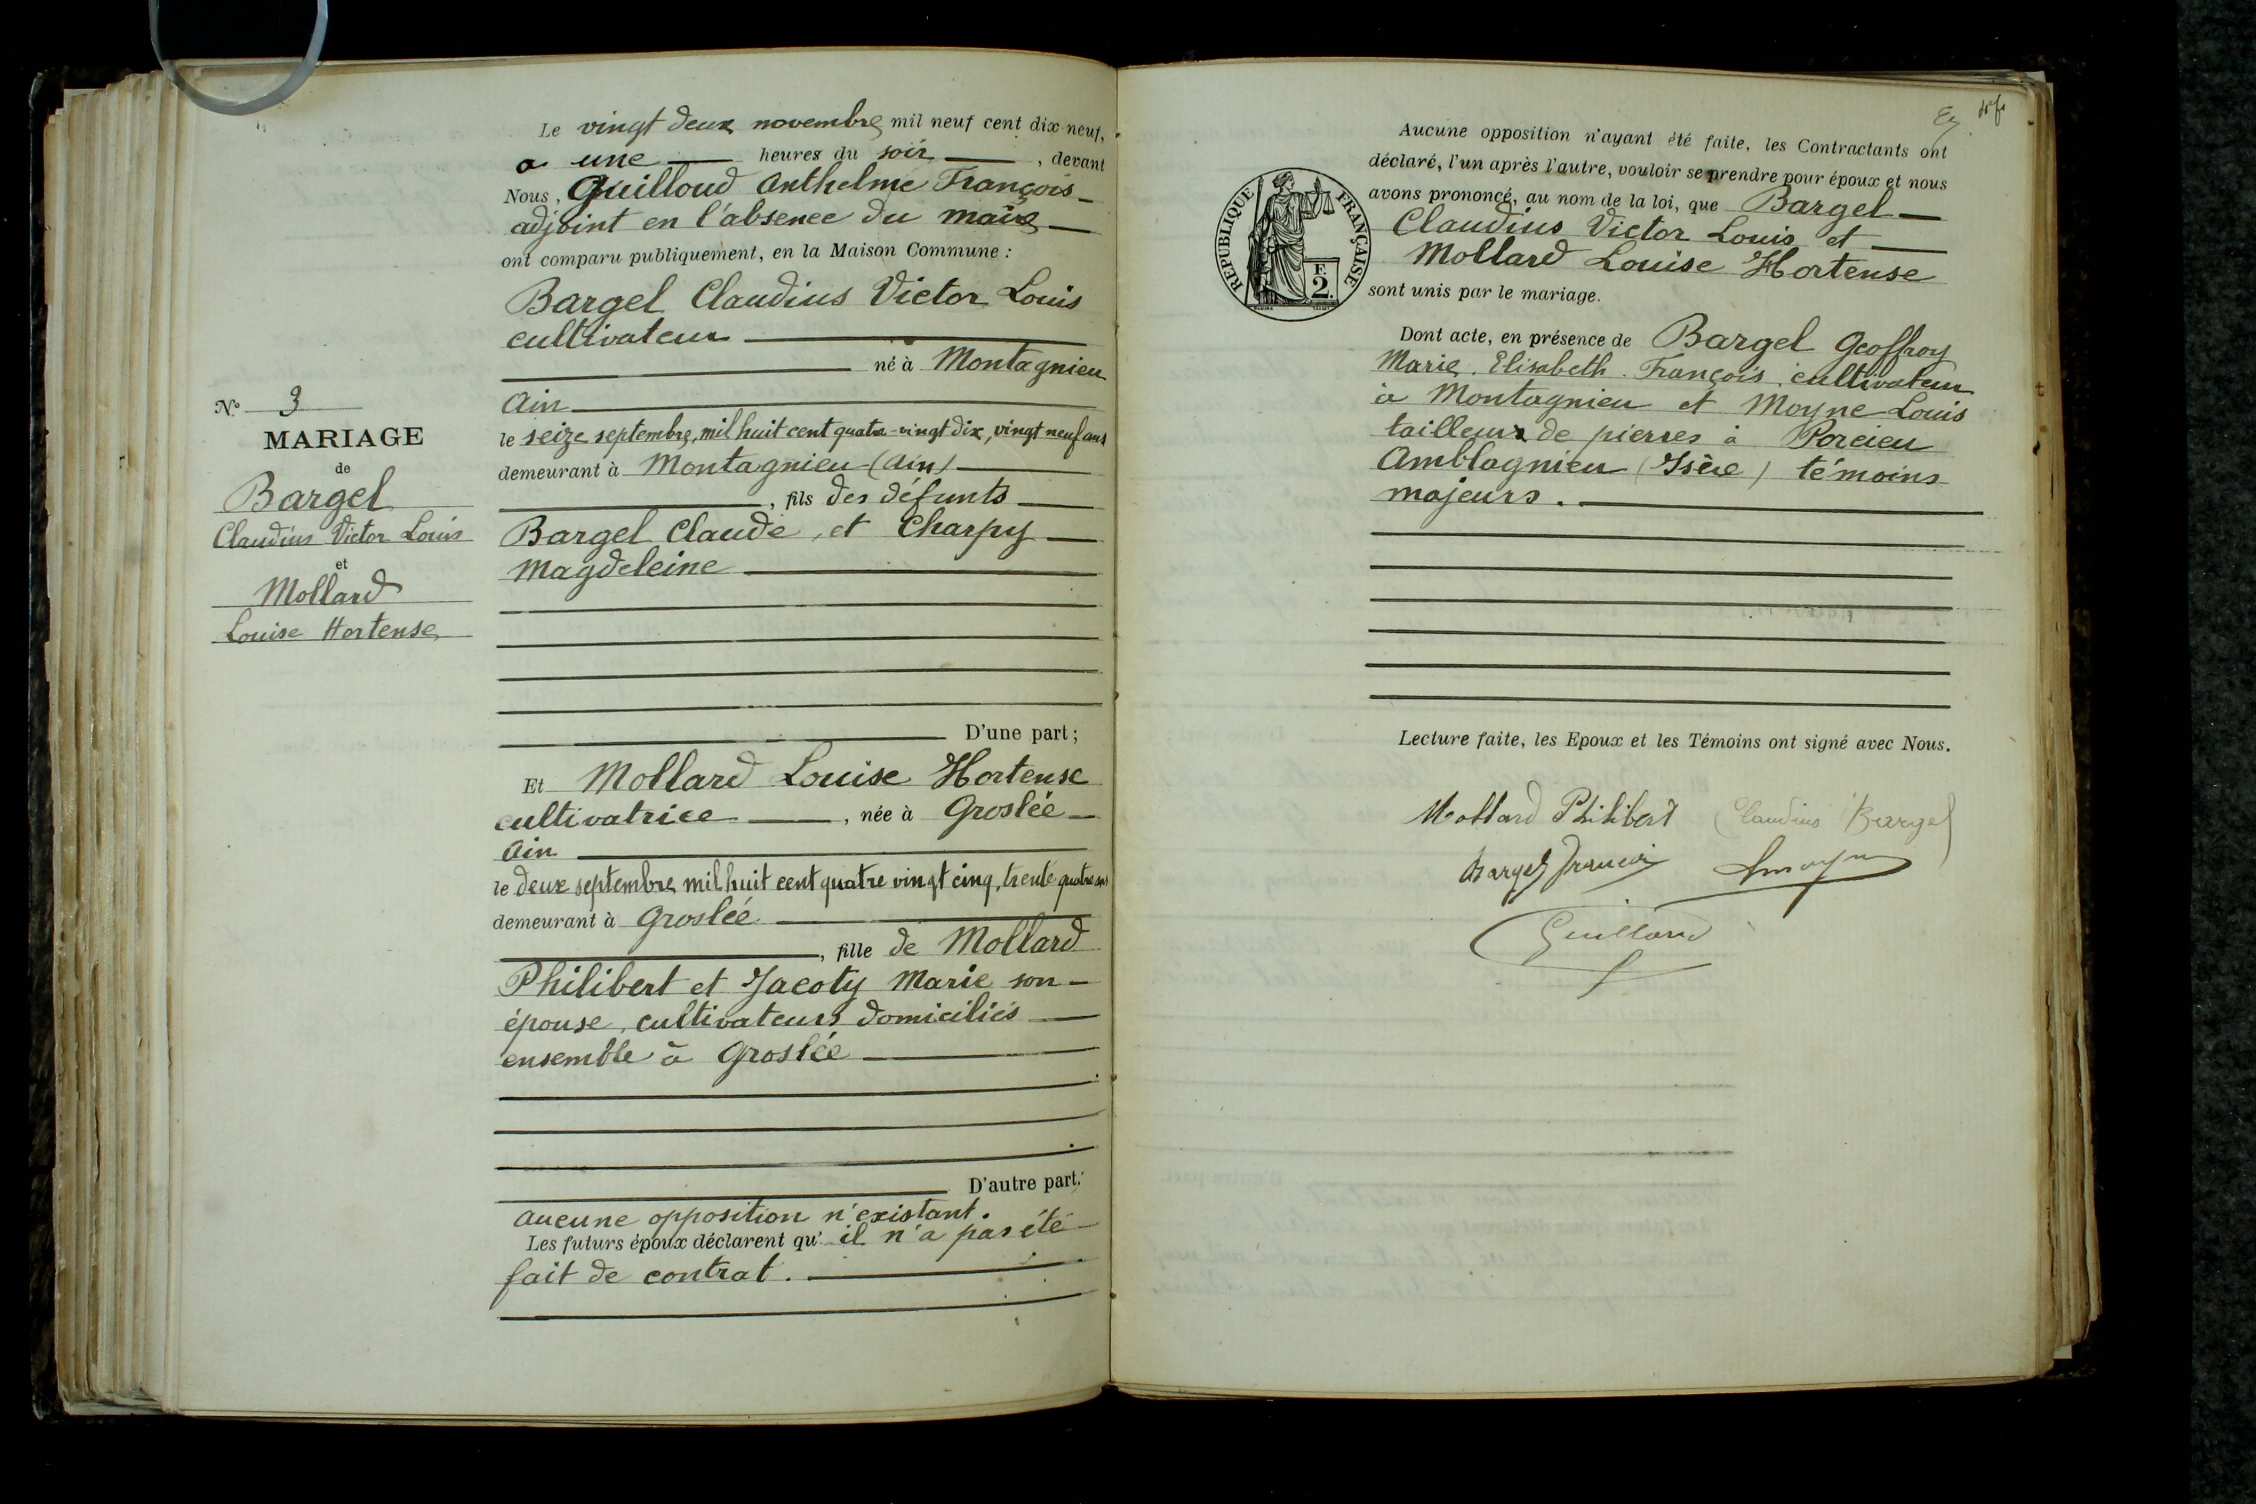 Le vingt deux novembre mil neuf cent dix-neuf,
a une heures du soir, devant
Nous, Guilloud Anthelme François
adjoint en l'absence du maire
ont comparu publiquement, en la Maison Commune :
Bargel Claudius Victor Louis
cultivateur
né à Montagnieu
Ain
le seize septembre, mil huit cent quatre-vingt dix, vingt neuf ans
demeurant à Montagnieu (Ain)
, fils des défunts
Bargel Claude, et Charpy
Magdeleine
D'une part ;
Et Mollard Louise Hortense
cultivatrice, née à Groslée
Ain
le deux septembre mil huit cent quatre vingt cinq, trente quatre ans
demeurant à Groslée
, fille de Mollard
Philibert et Jacoty Marie son
épouse, cultivateurs domiciliés
ensemble à Groslée
D'autre part.
Aucune opposition n'existant.
Les futurs époux déclarent qu' il n'a pas été
fait de contrat.
N° 3
MARIAGE
de
Bargel
Claudius Victor Louis
et
Mollard
Louise Hortense
Aucune opposition n'ayant été faite, les Contractants ont
déclaré, l'un après l'autre, vouloir se prendre pour époux et nous
avons prononcé, au nom de la loi, que Bargel
Claudius Victor Louis et
Mollard Louise Hortense
sont unis par le mariage.
REPUBLIQUE FRANÇAISE
F.
2.
Dont acte, en présence de Bargel Geoffroy
Marie. Elisabeth. François, cultivateur
à Montagnieu et Moyne Louis
tailleur de pierres à Porcieu
Amblagnieu (Isère) témoins
majeurs.
Lecture faite, les Epoux et les Témoins ont signé avec Nous.
Mollard Philibert Claudius Bargel
Bargel François Lmoyne
Guilloud